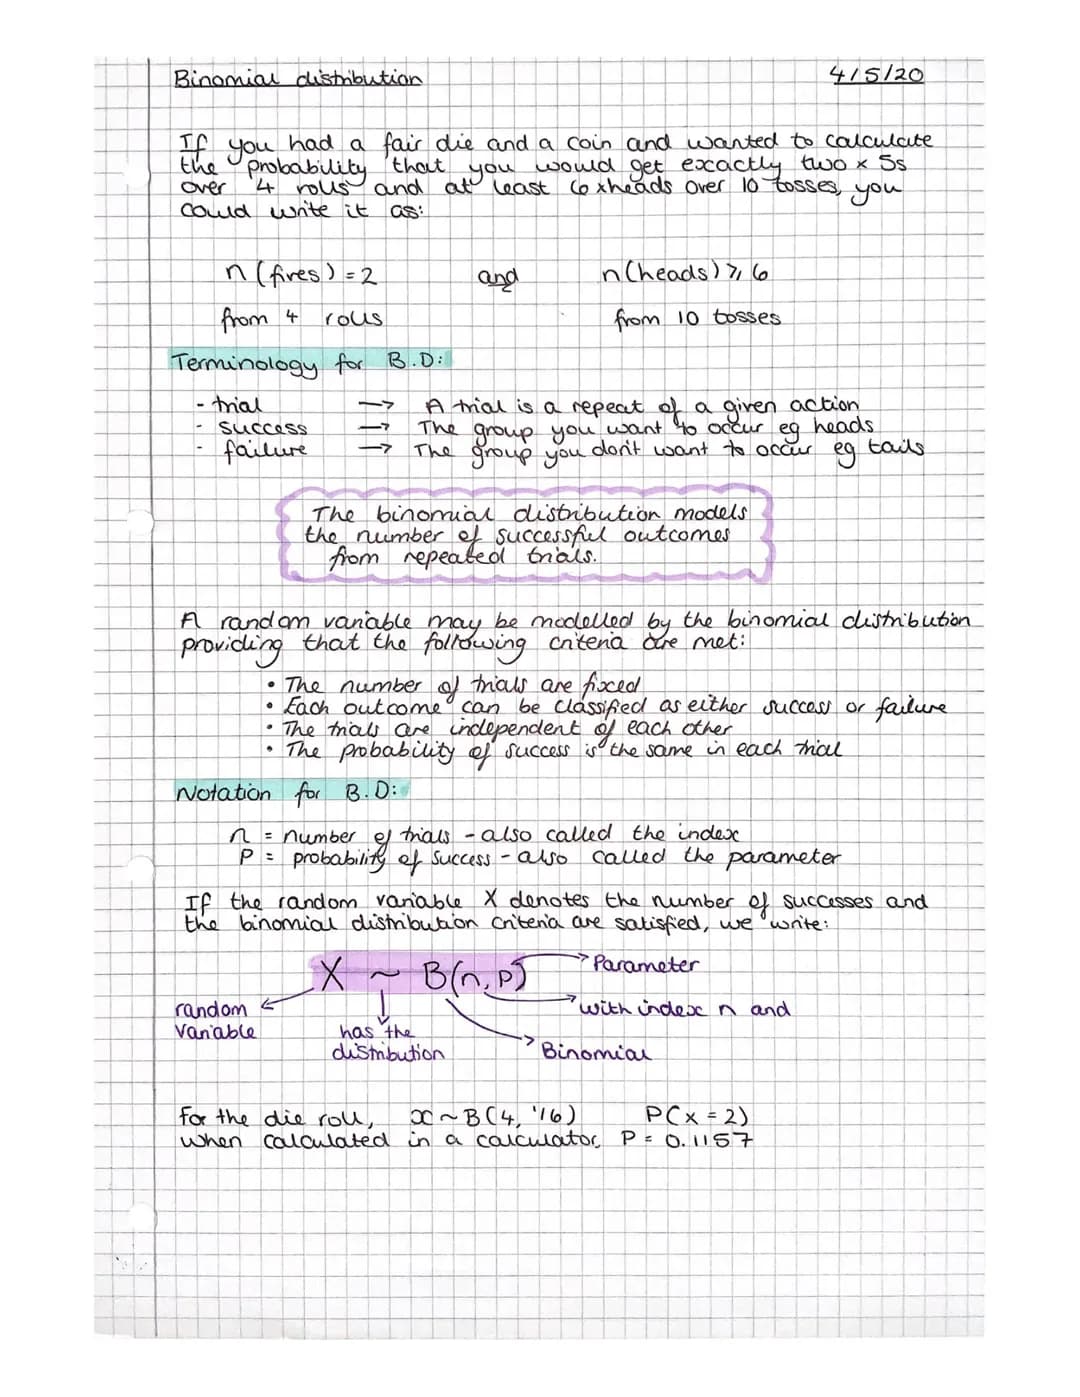 Binomial distribution 4/5/20
If you had a fair die and a coin and wanted to calculate
the probability that you would get exactly two x 5s
over 4 rolls and at least 6 x heads over 10 tosses, you
could write it as:
n (fives) = 2 and n(heads) ⩾ 6
from 4 rolls from 10 tosses
Terminology for B.D:
- trial → A trial is a repeat of a given action
- success → The group you want to occur eg heads
- failure → The group you don't want to occur eg tails
The binomial distribution models
the number of successful outcomes
from repeated trials.
A random variable may be modelled by the binomial distribution
providing that the following criteria are met:
• The number of trials are fixed
• Each outcome can be classified as either success or failure
• The trials are independent of each other
• The probability of success is the same in each trial
Notation for B.D:
n = number of trials - also called the index
P = probability of success - also called the parameter
If the random variable X denotes the number of successes and
the binomial distribution criteria are satisfied, we write:
X ~ B(n, p) → Parameter
random → with index n and
variable has the
distribution → Binomial
For the die roll, x ~ B(4, 1/6) P(x = 2)
when calculated in a calculator, P = 0.1157